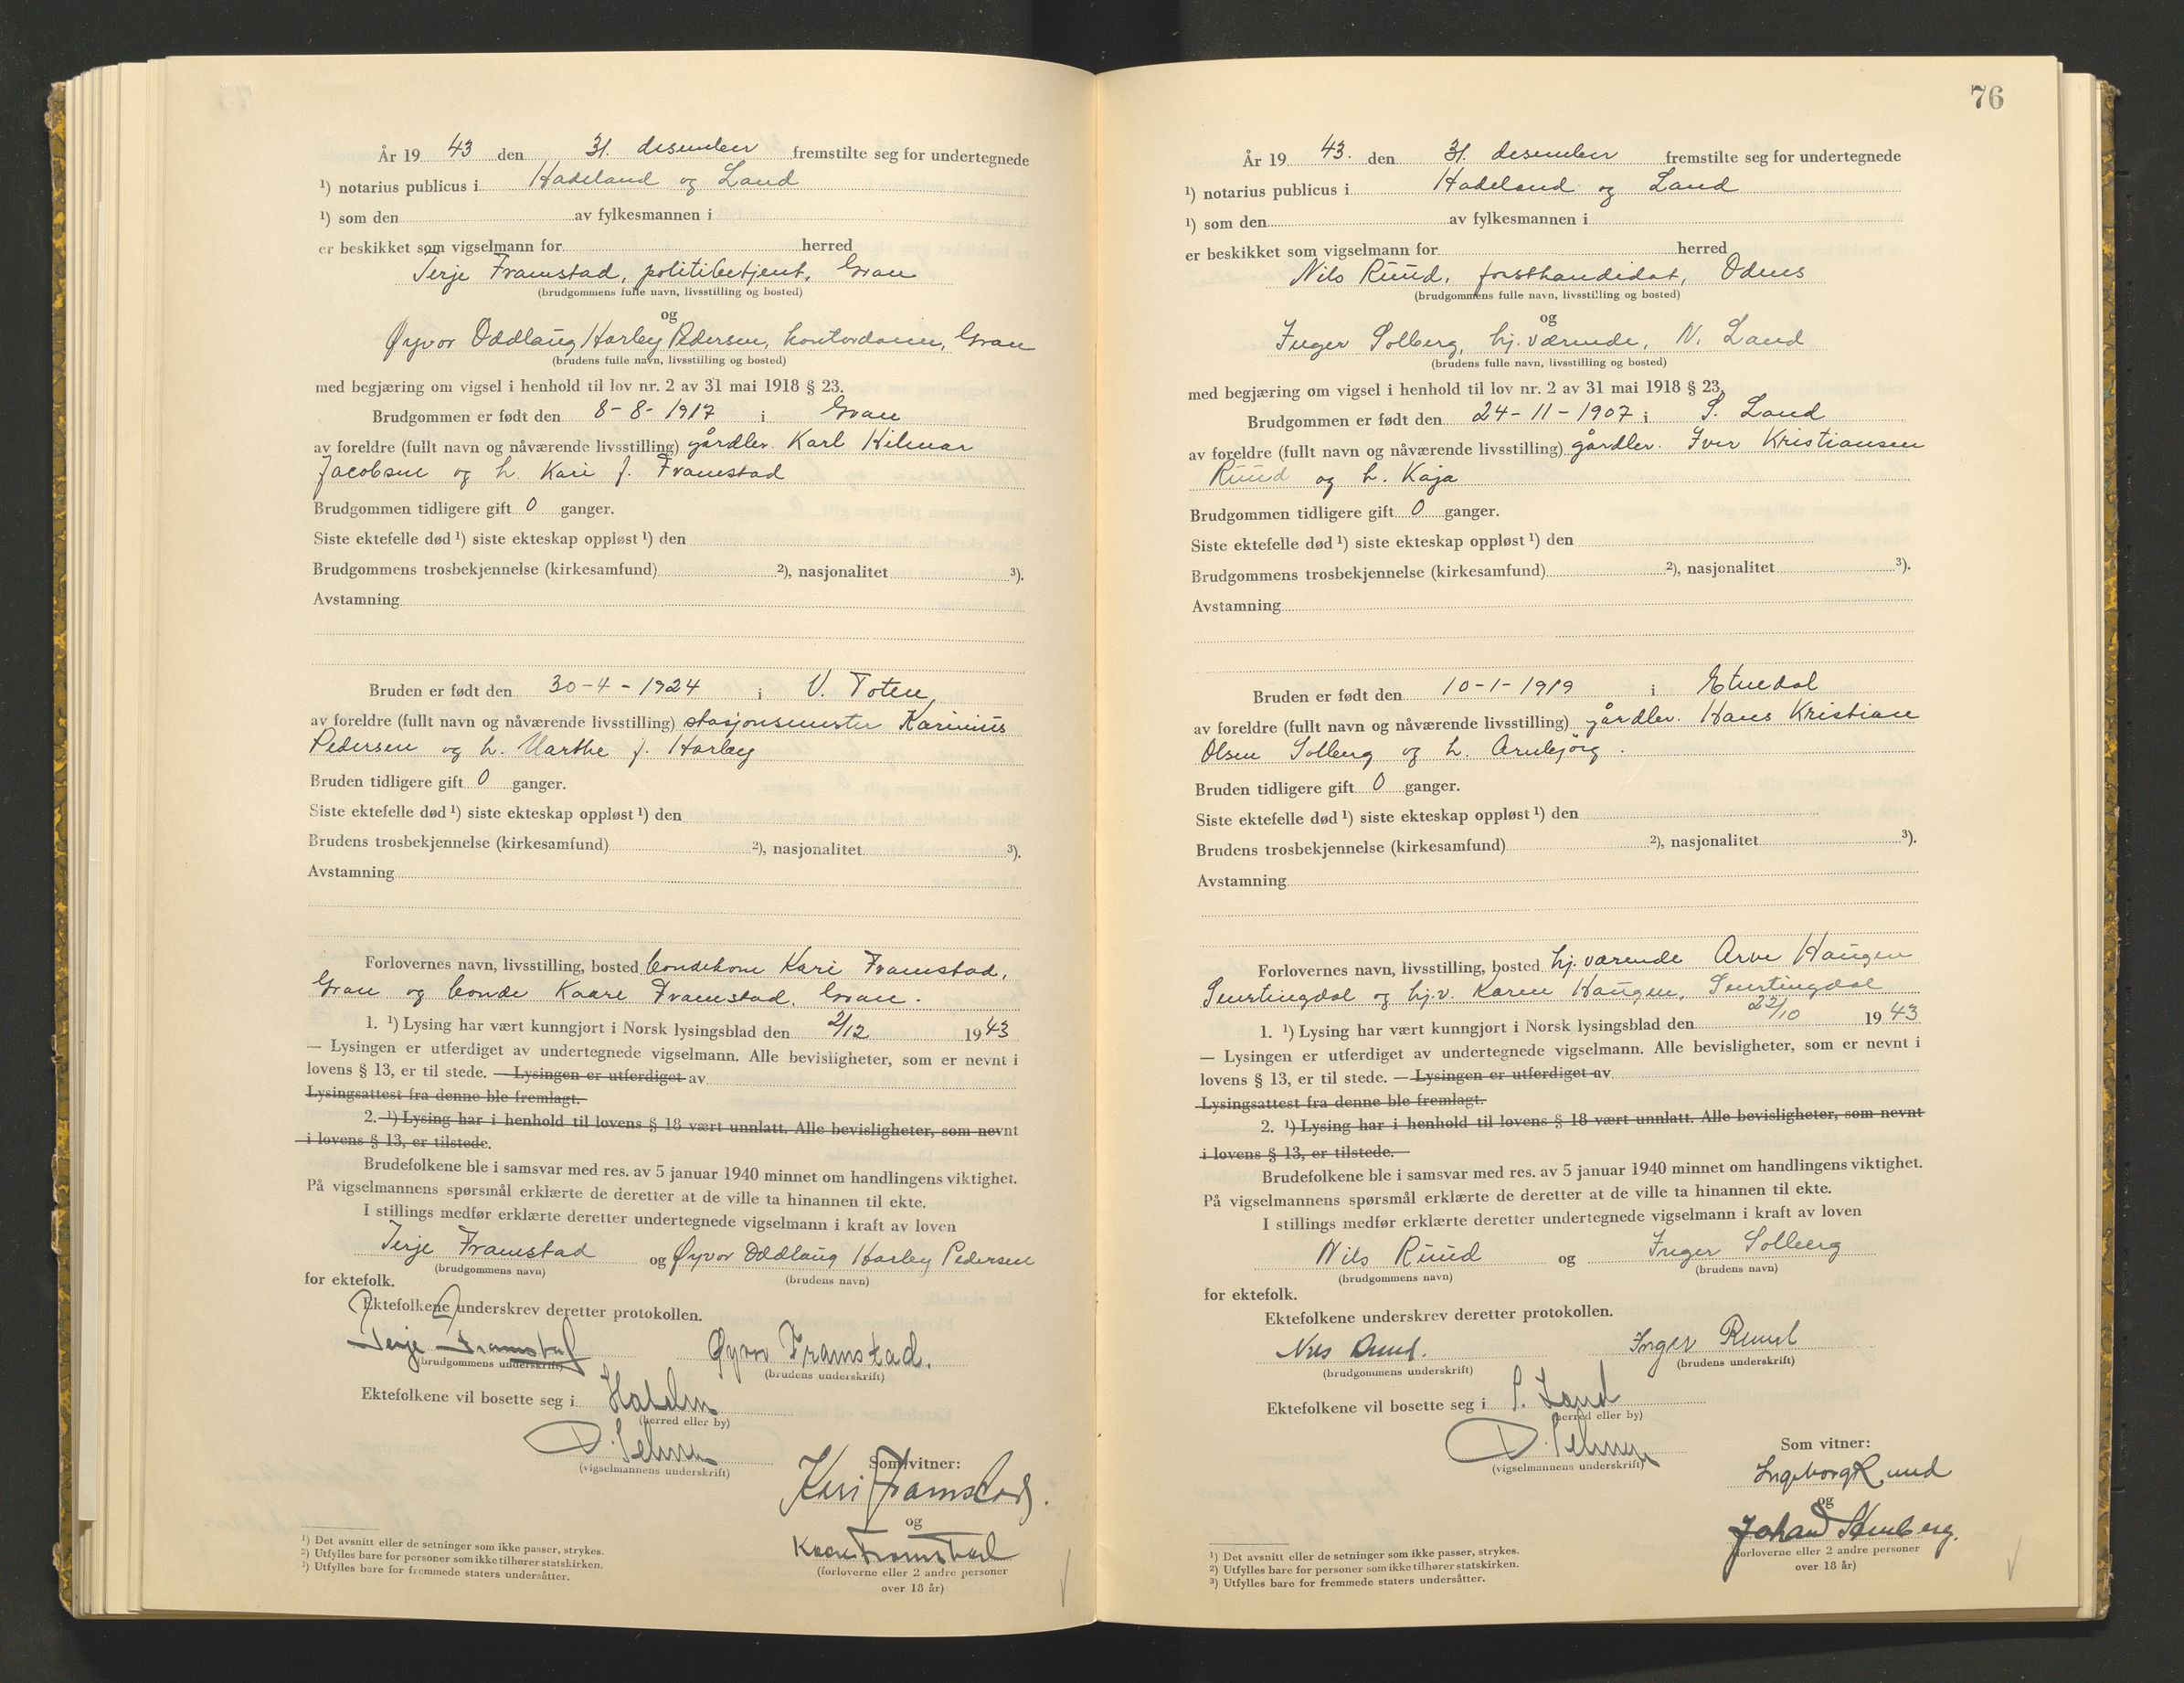 År 19 43 den 31. desember fremstilte seg for undertegnede
¹) notarius publicus i Hadeland og Land
¹) som den av fylkesmannen i
er beskikket som vigselmann for herred
Terje Framstad, politibetjent, Gran
(brudgommens fulle navn, livsstilling og bosted)
og
Øyvor Oddlaug Harley Pedersen, kontordame, Gran
(brudens fulle navn, livsstilling og bosted)
med begjæring om vigsel i henhold til lov nr. 2 av 31 mai 1918 § 23.
Brudgommen er født den 8-8-1917 i Gran
av foreldre (fullt navn og nåværende livsstilling) gårdbr. Karl Hilmar
Jacobsen og h. Kari f. Framstad
Brudgommen tidligere gift 0 ganger.
Siste ektefelle død ¹) siste ekteskap oppløst ¹) den
Brudgommens trosbekjennelse (kirkesamfund) ²), nasjonalitet ³).
Avstamning
Bruden er født den 30-4-1924 i V. Toten,
av foreldre (fullt navn og nåværende livsstilling) stasjonsmester Karinius
Pedersen og h. Marthe f. Harley
Bruden tidligere gift 0 ganger.
Siste ektefelle død ¹) siste ekteskap oppløst ¹) den
Brudens trosbekjennelse (kirkesamfund) ²), nasjonalitet ³).
Avstamning
Forlovernes navn, livsstilling, bosted bondekone Kari Framstad,
Gran og bonde Kaare Framstad, Gran.
1. ¹) Lysing har vært kunngjort i Norsk lysingsblad den 2/12 1943
— Lysingen er utferdiget av undertegnede vigselmann. Alle bevisligheter, som er nevnt i
lovens § 13, er til stede. — Lysingen er utferdiget av
Lysingsattest fra denne ble fremlagt.
2. ¹) Lysing har i henhold til lovens § 18 vært unnlatt. Alle bevisligheter, som nevnt
i lovens § 13, er tilstede.
Brudefolkene ble i samsvar med res. av 5 januar 1940 minnet om handlingens viktighet.
På vigselmannens spørsmål erklærte de deretter at de ville ta hinannen til ekte.
I stillings medfør erklærte deretter undertegnede vigselmann i kraft av loven
Terje Framstad og Øyvor Oddlaug Harley Pedersen
(brudgommens navn) (brudens navn)
for ektefolk.
Ektefolkene underskrev deretter protokollen.
Terje Framstad Øyvor Framstad.
(brudgommens underskrift) (brudens underskrift)
Ektefolkene vil bosette seg i
(herred eller by)
(vigselmannens underskrift)
Som vitner:
Kari Framstad.
og
Kaare Framstad
(forloverne eller 2 andre personer
over 18 år)
¹) Det avsnitt eller de setninger som ikke passer, strykes.
²) Utfylles bare for personer som ikke tilhører statskirken.
³) Utfylles bare for fremmede staters undersåtter.
76
År 19 43. den 31. desember fremstilte seg for undertegnede
¹) notarius publicus i Hadeland og Land
¹) som den av fylkesmannen i
er beskikket som vigselmann for herred
Nils Ruud, forstkandidat, Odnes
(brudgommens fulle navn, livsstilling og bosted)
og
Inger Solberg, hj. værende, N. Land
(brudens fulle navn, livsstilling og bosted)
med begjæring om vigsel i henhold til lov nr. 2 av 31 mai 1918 § 23.
Brudgommen er født den 24-11-1907 i S. Land
av foreldre (fullt navn og nåværende livsstilling) gårdbr. Iver Kristiansen
Ruud og h. Kaja
Brudgommen tidligere gift 0 ganger.
Siste ektefelle død ¹) siste ekteskap oppløst ¹) den
Brudgommens trosbekjennelse (kirkesamfund) ²), nasjonalitet ³).
Avstamning
Bruden er født den 10-1-1919 i Etnedal
av foreldre (fullt navn og nåværende livsstilling) gårdbr. Hans Kristian
Olsen Solberg og h. Arnbjørg.
Bruden tidligere gift 0 ganger.
Siste ektefelle død ¹) siste ekteskap oppløst ¹) den
Brudens trosbekjennelse (kirkesamfund) ²), nasjonalitet ³).
Avstamning
Forlovernes navn, livsstilling, bosted hj. værende Arve Haugen
Snertingdal og hj.v. Karen Haugen, Snertingdal
1. ¹) Lysing har vært kunngjort i Norsk lysingsblad den 22/10 1943
— Lysingen er utferdiget av undertegnede vigselmann. Alle bevisligheter, som er nevnt i
lovens § 13, er til stede. — Lysingen er utferdiget av
Lysingsattest fra denne ble fremlagt.
2. ¹) Lysing har i henhold til lovens § 18 vært unnlatt. Alle bevisligheter, som nevnt
i lovens § 13, er tilstede.
Brudefolkene ble i samsvar med res. av 5 januar 1940 minnet om handlingens viktighet.
På vigselmannens spørsmål erklærte de deretter at de ville ta hinannen til ekte.
I stillings medfør erklærte deretter undertegnede vigselmann i kraft av loven
Nils Ruud og Inger Solberg
(brudgommens navn) (brudens navn)
for ektefolk.
Ektefolkene underskrev deretter protokollen.
Nils Ruud. Inger Ruud
(brudgommens underskrift) (brudens underskrift)
Ektefolkene vil bosette seg i S. Land
(herred eller by)
(vigselmannens underskrift)
Som vitner:
Ingeborg Ruud
og
Johan
(forloverne eller 2 andre personer
over 18 år)
¹) Det avsnitt eller de setninger som ikke passer, strykes.
²) Utfylles bare for personer som ikke tilhører statskirken.
³) Utfylles bare for fremmede staters undersåtter.